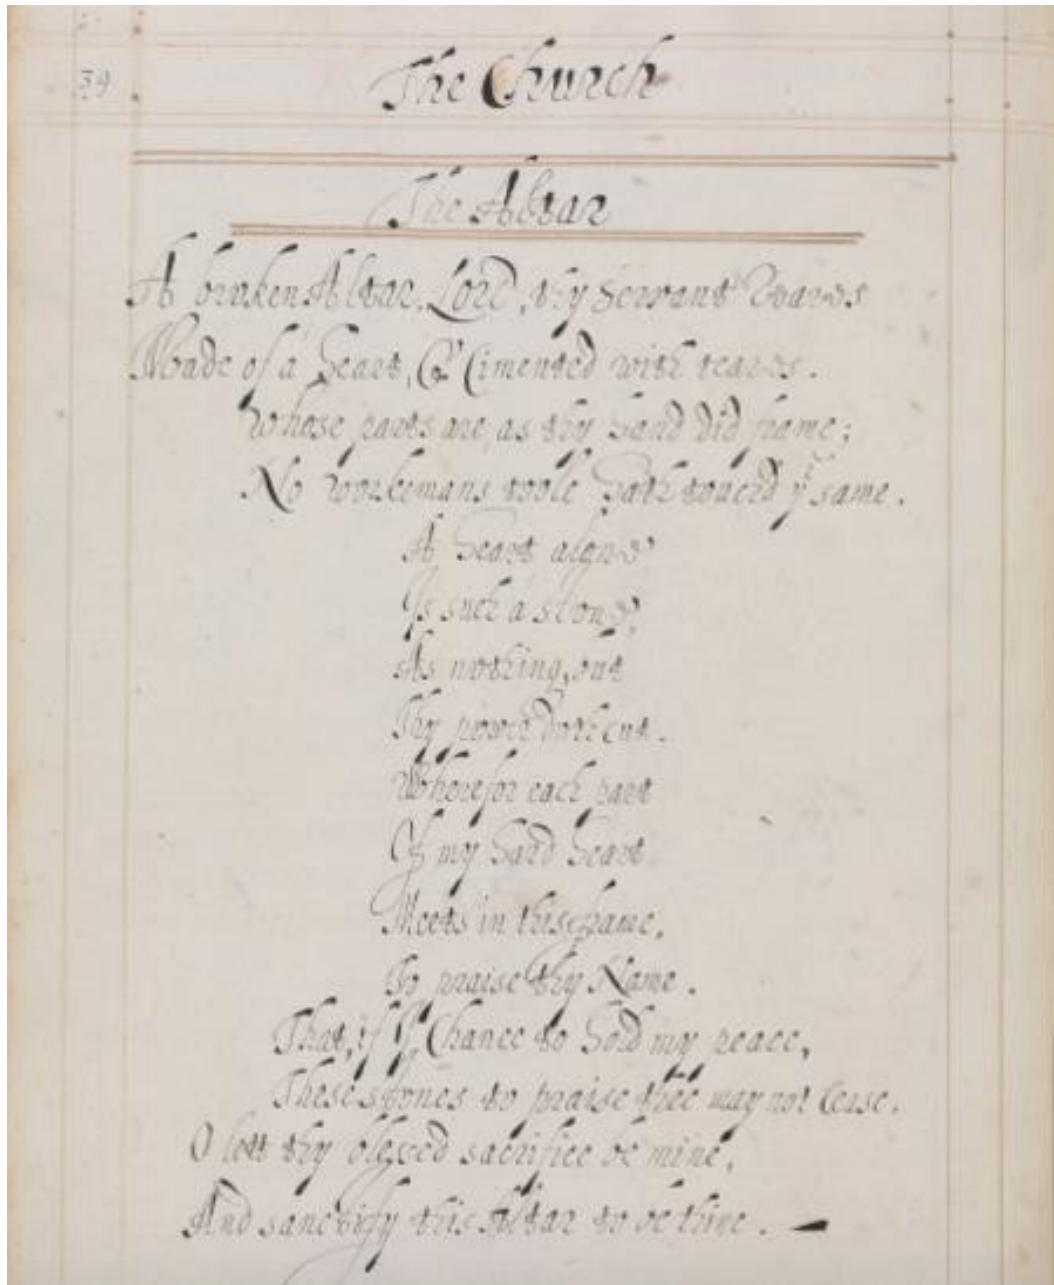 39
The Church
The Altar
A broken Altar, Lord, thy servant reares
Made of a heart, & Cimented with teares.
Whose parts are as thy hand did frame;
No workemans toole hath touch'd yᵉ same.
A heart alone
Is such a stone,
As nothing, but
Thy power doth cut.
Wherefor each part
Of my hard heart
Meets in this frame,
To praise thy Name.
That, if I Chance to hold my peace,
These stones to praise thee may not cease.
O lett thy blessed sacrifice be mine,
And sanctify this Altar to be thine.